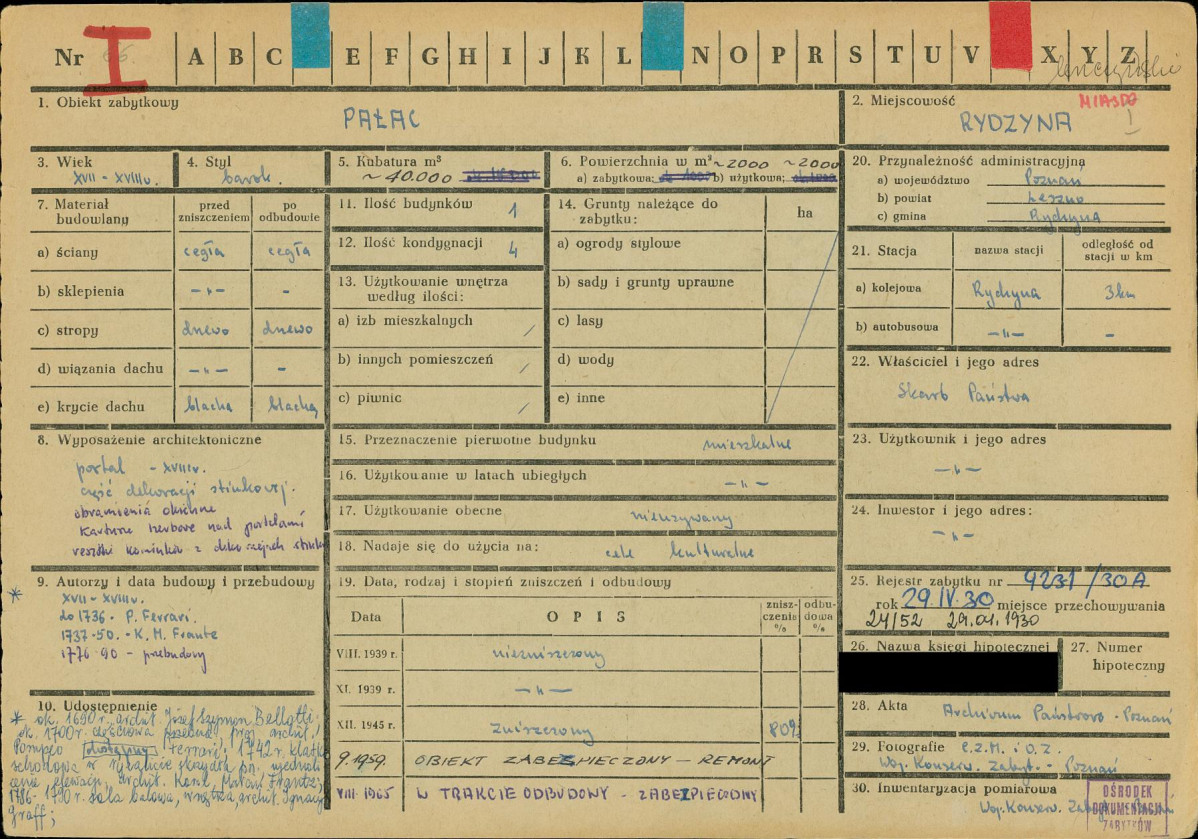 Nr I A B C E F G H I J K L N O P R S T U V X Y Z
1. Obiekt zabytkowy
PAŁAC
2. Miejscowość
MIASTO
I
RYDZYNA
3. Wiek
XVII - XVIII w.
4. Styl
barok.
5. Kubatura m³
~ 40.000
6. Powierzchnia w m² ~2000 ~2000
a) zabytkowa; b) użytkowa;
20. Przynależność administracyjna
a) województwo Poznań
b) powiat Leszno
c) gmina Rydzyna
7. Materiał budowlany
przed zniszczeniem
po odbudowie
a) ściany cegła cegła
b) sklepienia -„- -
c) stropy drewo drewo
d) wiązania dachu -„- -
e) krycie dachu blacha blachą
11. Ilość budynków 1
12. Ilość kondygnacji 4
13. Użytkowanie wnętrza
według ilości:
a) izb mieszkalnych /
b) innych pomieszczeń /
c) piwnic /
14. Grunty należące do
zabytku:
ha
a) ogrody stylowe
b) sady i grunty uprawne
c) lasy
d) wody
e) inne
21. Stacja
nazwa stacji
odległość od
stacji w km
a) kolejowa Rydzyna 3 km
b) autobusowa -„- -
22. Właściciel i jego adres
Skarb Państwa
23. Użytkownik i jego adres
-„-
24. Inwestor i jego adres:
-„-
8. Wyposażenie architektoniczne
portal - XVIII w.
część dekoracji stiukowej.
obramienia okienne
Kartusze herbowe nad portalami
resztki kominków z dekoracjach
15. Przeznaczenie pierwotne budynku mieszkalne
16. Użytkowanie w latach ubiegłych -„-
17. Użytkowanie obecne nieużywany
18. Nadaje się do użycia na: cele kulturalne
9. Autorzy i data budowy i przebudowy
*
XVII - XVIII w.
do 1736 - P. Ferrari.
1737-50. - K. M. Frante
1776-90 - przebudowy
19. Data, rodzaj i stopień zniszczeń i odbudowy
Data
OPIS
znisz-
czenie
%
odbu-
dowa
%
VIII. 1939 r. niezniszczony
XI. 1939 r. -„-
XII. 1945 r. zniszczony 80%
9.1959. OBIEKT ZABEZPIECZONY - REMONT
VIII 1965 W TRAKCIE ODBUDOWY - ZABEZPIECZONY
25. Rejestr zabytku nr 9231/30A
rok 29.IV.30 miejsce przechowywania
24/52 29.04.1930
26. Nazwa księgi hipotecznej
27. Numer
hipoteczny
28. Akta Archiwum Państwowo - Poznań
29. Fotografie C.Z.M. i O.Z.
Woj. Konserw. Zabyt. - Poznań
30. Inwentaryzacja pomiarowa
Woj. Konserw.
OŚRODEK
DOKUMENTACJI
ZABYTKÓW
10. Udostępnienie
* ok. 1690 r. archit. Józef Szymon Bellotti;
ok. 1700 r. częściowa przebud. proj. archit.
Pompeo Ferrari; 1742 r. klatka
schodowa w ryzalicie skrzydła pn. ujednoli
cenie elewacji, archit. Karol Marcin Frantz;
1786-1790 r. sala balowa, wnętrza, archit. Ignacy
Graff;